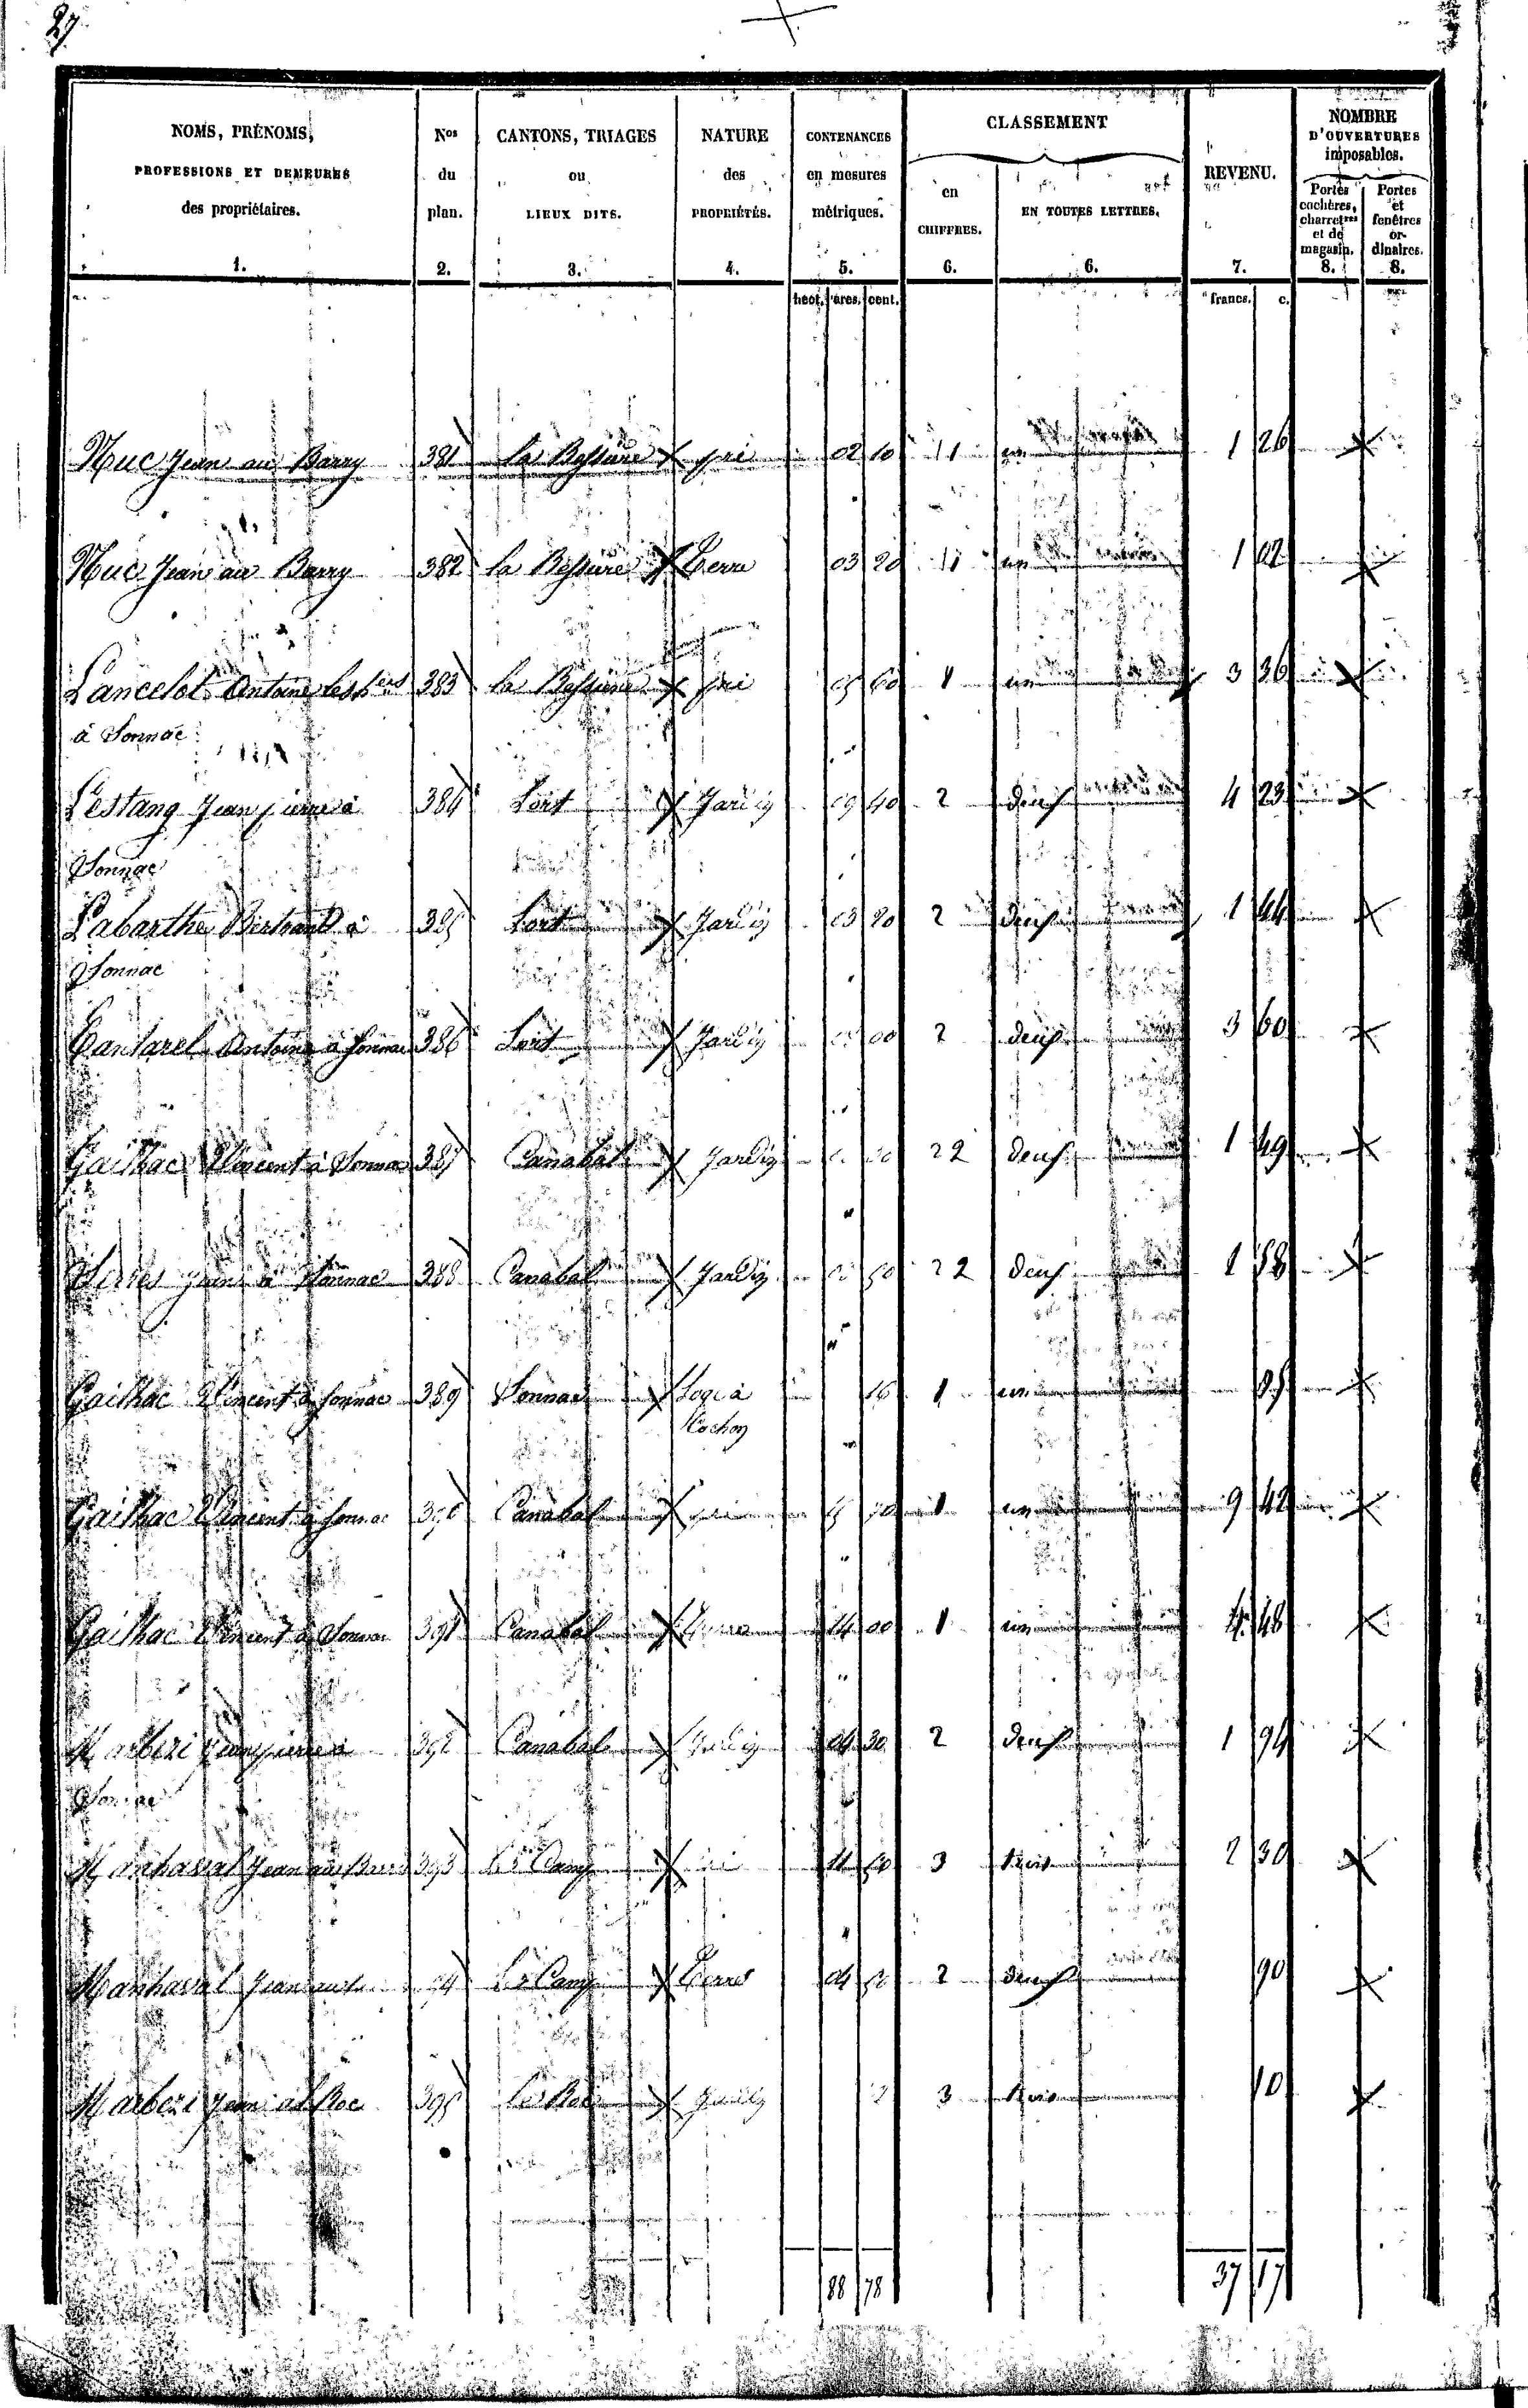 27
NOMS, PRÉNOMS, PROFESSIONS ET DEMEURES des propriétaires. 1.
Nos du plan. 2.
CANTONS, TRIAGES ou LIEUX DITS. 3.
NATURE des PROPRIÉTÉS. 4.
CONTENANCES en mesures métriques. 5.
CLASSEMENT
en CHIFFRES. 6.
EN TOUTES LETTRES. 6.
REVENU. 7.
NOMBRE D'OUVERTURES imposables.
Portes cochères, charretres et de magasin. 8.
Portes et fenêtres or- dinaires. 8.
hect. ares. cent. francs. c.
Huc Jean au Barry 381 La Bessière pré 02 10 11 un 1 26
Huc Jean au Barry 382 La Bessière Terre 03 20 11 un 1 02
Lancelot Antoine les hers 383 La Bessière pré 05 60 1 un 3 36
à Sonnac
Lestang Jean pierre à 384 Lort Jardin 09 40 2 deux 4 23
Sonnac
Labarthe Bertrand à 385 Lort Jardin 03 20 2 deux 1 44
Sonnac
Cantarel Antoine à Sonnac 386 Lort Jardin 00 2 deux 3 60
Gailhac Vincent à Sonnac 387 Canabal Jardin 22 deux 1 49
Jean à Sonnac 388 Canabal Jardin 50 22 deux 1 58
Gailhac Vincent à Sonnac 389 Sonnac Loge à 16 1 un
Cochon
Gailhac Vincent à Sonnac 390 Canabal pré 70 1 un 9 42
Gailhac Vincent à Sonnac 391 Canabal Terre 14 00 1 un 4 48
Marberi Jean pierre à 392 Canabal Jardin 04 30 2 deux 1 94
Sonnac
Manhaval Jean au 393 Le Camp pré 11 50 3 trois 2 30
Manhaval Jean Le Camp Terre 04 50 2 deux 90
Marberi Jean al Roc 395 Le Roc 3 trois 10
88 78 37 17